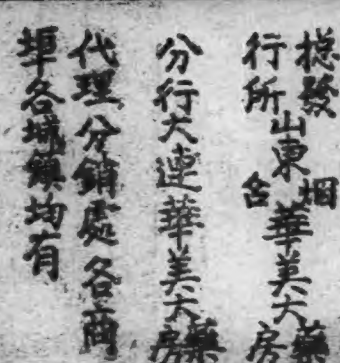 總發行所山東烟台華美大藥房
分行大連華美大藥房
代理分銷處各商
埠各城鎮均有